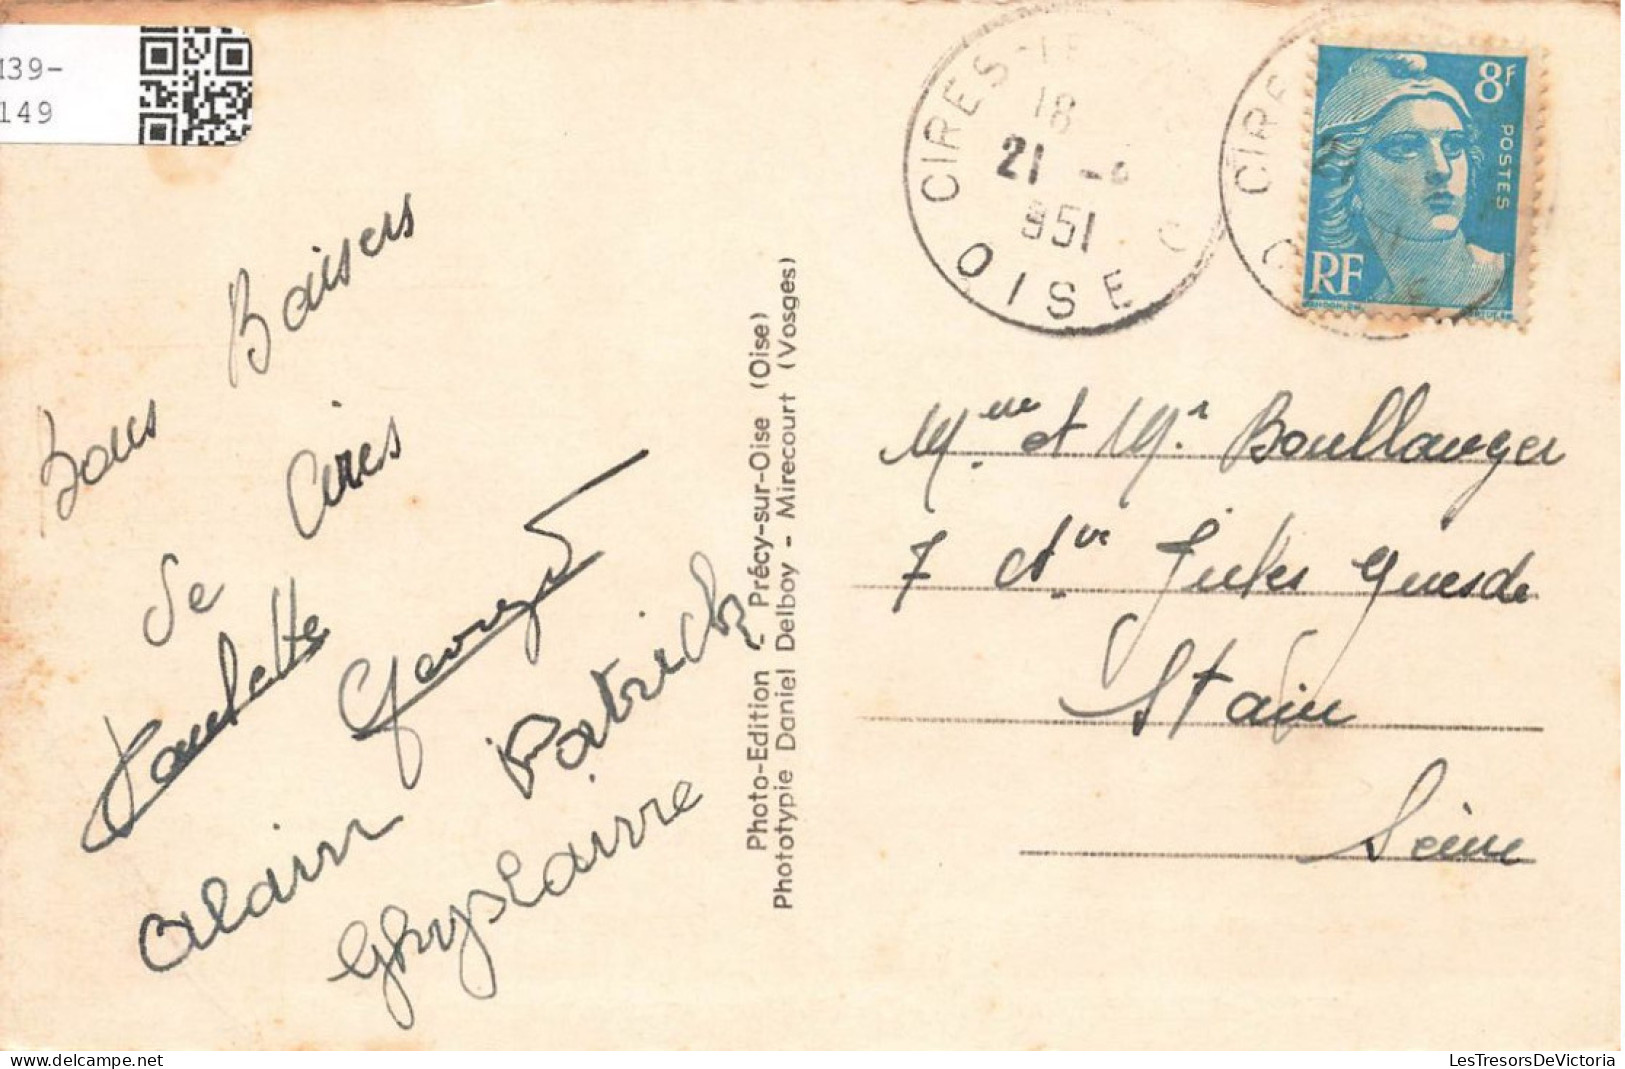 M39-
149
CIRES-
18
21 -
951
OISE
CIRE
8F
POSTES
RF
Bons Baisers
de Cires
Paulette
Georges
Alain
Patrick
Ghyslainne
Photo-Edition - Précy-sur-Oise (Oise)
Phototypie Daniel Delboy - Mirecourt (Vosges)
Mme et Mr Boullanger
7 Ave Jules Guesde
Stain
Seine
LesTresorsDeVictoria